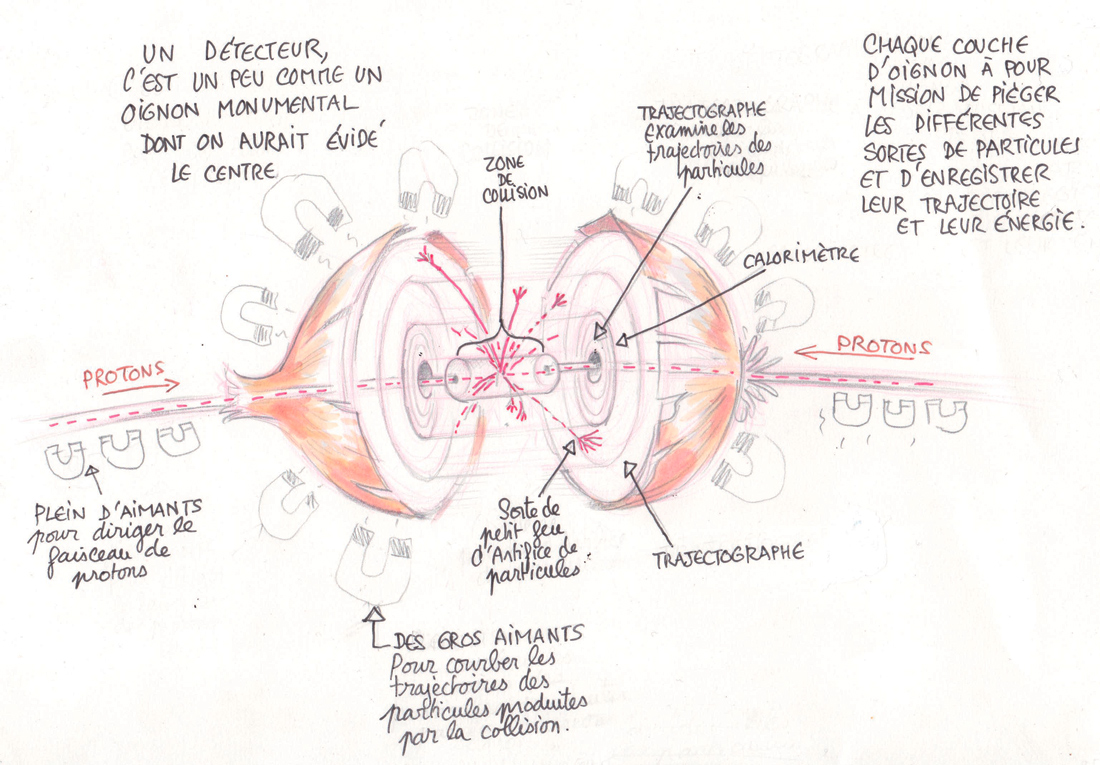 UN DÉTECTEUR,
C'EST UN PEU COMME UN
OIGNON MONUMENTAL
DONT ON AURAIT ÉVIDÉ
LE CENTRE
CHAQUE COUCHE
D'OIGNON À POUR
MISSION DE PIÉGER
LES DIFFÉRENTES
SORTES DE PARTICULES
ET D'ENREGISTRER
LEUR TRAJECTOIRE
ET LEUR ÉNERGIE.
TRAJECTOGRAPHE
Examine les
trajectoires des
particules
ZONE
DE
COLLISION
CALORIMÈTRE
PROTONS
PROTONS
PLEIN D'AIMANTS
pour diriger le
faisceau de
protons
Sorte de
petit feu
d'Artifice de
particules.
TRAJECTOGRAPHE
DES GROS AIMANTS
Pour courber les
trajectoires des
particules produites
par la collision.